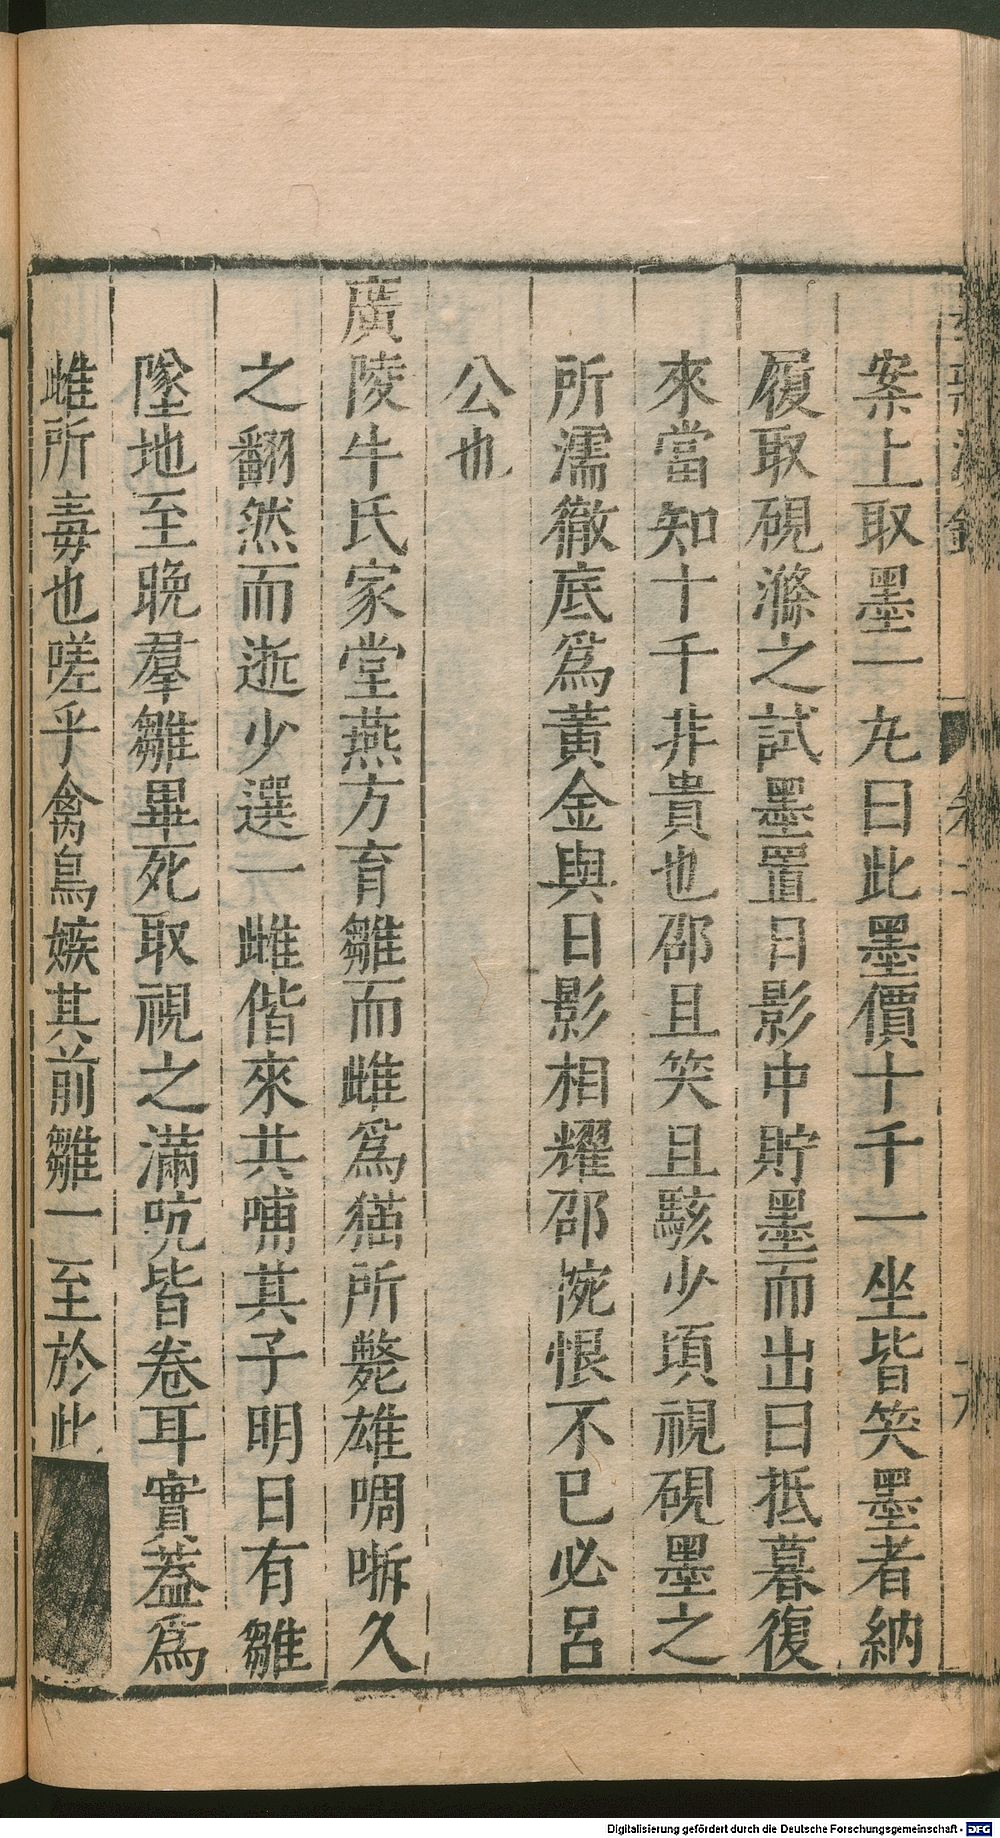 案上取墨一丸曰此墨價十千一坐皆笑墨者納
履取硯滌之試墨置日影中貯墨而出曰抵暮復
來當知十千非貴也邵且笑且駭少頃視硯墨之
所濡徹底爲黃金與日影相耀邵惋恨不已必呂
公也
廣陵牛氏家堂燕方育雛而雌爲猫所斃雄啁哳久
之翻然而逝少選一雌偕來共哺其子明日有雛
墜地至晚羣雛畢死取視之滿吭皆卷耳實蓋爲
雌所毒也嗟乎禽鳥嫉其前雛一至於此
Digitalisierung gefördert durch die Deutsche Forschungsgemeinschaft - DFG